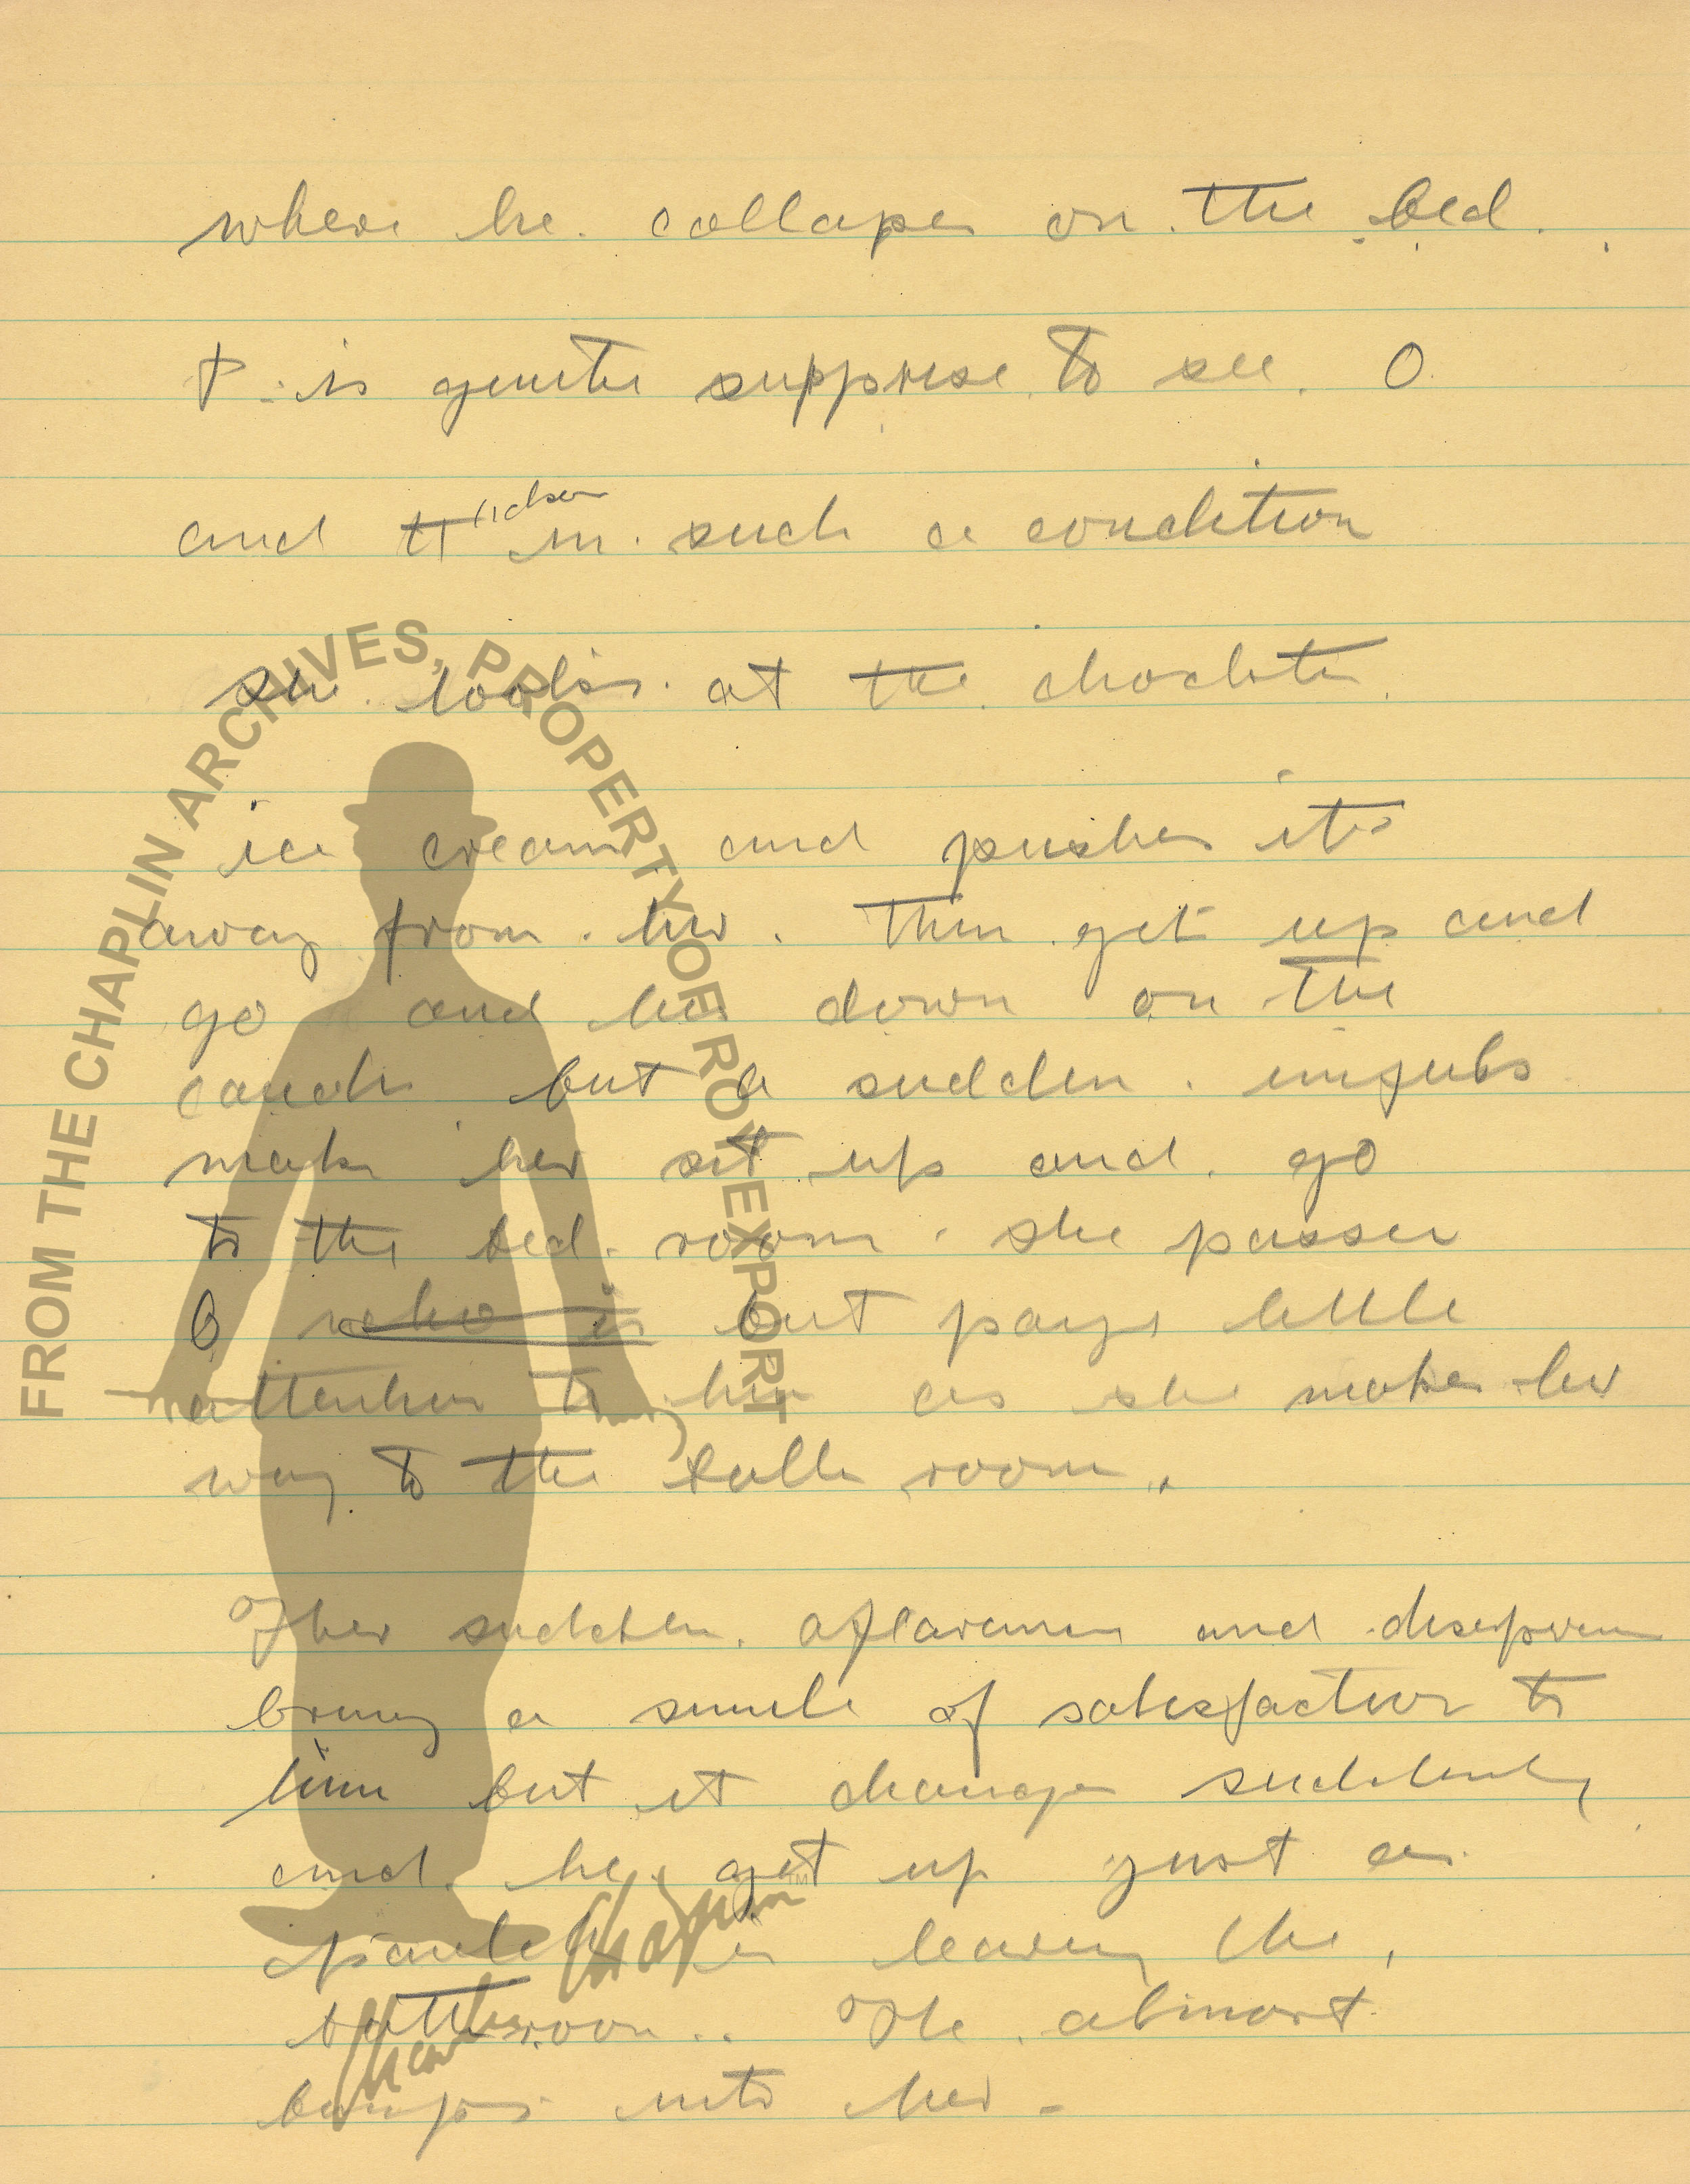 where he collapes on the bed.
P is quite supprise to see O
and H udson in such a condition
she looks at the choclate
ice cream and pushes it
away from her. Then get up and
go and lie down on the
couch but a sudden impuls
make her sit up and go
to the bed room. she passes
O who is but pays little
attention to him as she makes her
way to the bath room.
Her sudden apearance and
bring a smile of satisfaction to
him but it change suddenly
and he get up just as
is leaving the
bathroom.. He almost
bumps into her -
FROM THE CHAPLIN ARCHIVES, PROPERTY OF ROY EXPORT
Charles Chaplin
TM